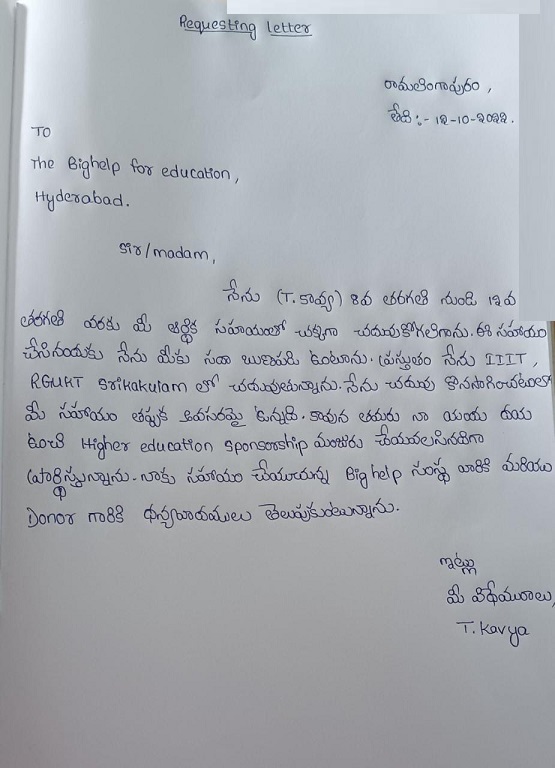 Requesting Letter
రామలింగాపురం,
తేది :- 12-10-2022.
TO
The Bighelp for education,
Hyderabad.
Sir/madam,
నేను (T. కావ్య) 8వ తరగతి నుండి 12వ
తరగతి వరకు మీ ఆర్థిక సహాయంతో చక్కగా చదువుకోగలిగాను. ఈ సహాయం
చేసినందుకు నేను మీకు సదా ఋణపడి ఉంటాను. ప్రస్తుతం నేను IIIT,
RGUKT Srikakulam లో చదువుతున్నాను. నేను చదువు కొనసాగించటంలో
మీ సహాయం తప్పక అవసరమై ఉన్నది. కావున తమరు నా యందు దయ
ఉంచి Higher education sponsorship మంజురు చేయవలసినదిగా
ప్రార్థిస్తున్నాను. నాకు సహాయం చేయుచున్న Big help సంస్థ వారికి మరియు
Donor గారికి ధన్యవాదములు తెలుపుకుంటున్నాను.
ఇట్లు
మీ విధేయురాలు,
T. Kavya